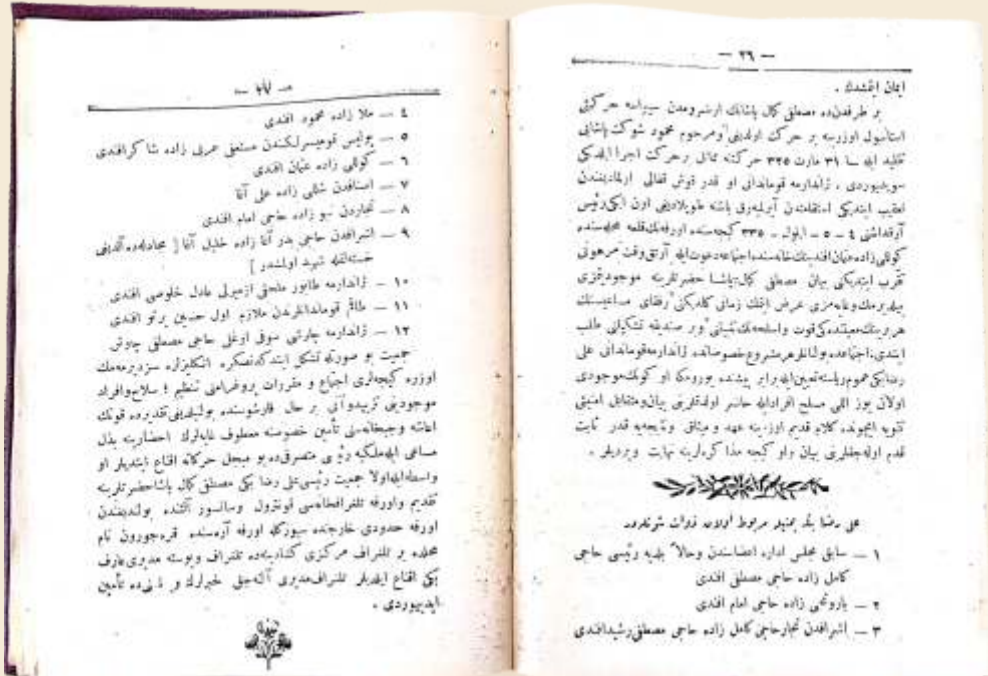 — ٢٦ —
ایمان ایتمشدك .
بر طرفدن ده مصطفی كمال پاشانك ارضرومدن سیواسه حركتی
استانبول اوزرینه بر حركت اولدیغی و مرحوم محمود شوكت پاشایی
تقلید ایله سا ٣١ مارت ٣٢٥ حركتنه مماثل بر حركت اجرا ایله‌جكی
سویلنیوردی . ژاندارمه قوماندانی او قدر
تعقیب ایتدیكی باشنه طوپلادیغی اون ایكی رئیس
آرقداشنی ٤ - ٥ - ایلول - ٣٣٥ كیجه‌سنده اورفه‌نك قلعه محله‌سنده
كوللی زاده عثمان افندینك خانه‌سنده اجتماعه دعوت ایله آرتق وقت مرهونی
تقرب ایتدیكنی بیان مصطفی كمال پاشا حضرتلرینه موجودیتمزی
بیلدیرمك و عرض ایتمك زمانی كلدیكنی رفقای مساعیسنك
هر برینك معیتنده‌كی قوت و اسلحه‌نك و بر صندیقه تشكیلنی طلب
ایتدی ؛ اجتماعده بولنانلر هر مشروع خصوصاتده ژاندارمه قوماندانی علی
رضا بكی عموم ریاسته تعیین ایله برابر پیشنده یورومكه او كونك موجودی
اولان یوز اللی مسلح افراد ایله حاضر اولدقلرینی بیان و متقابل امنیتی
تقویه ایچونده كلام قدیم اوزرینه عهد و میثاق و نتیجه‌یه قدر ثابت
قدم اوله‌جقلرینی بیان و او كیجه مذاكره‌لرینه نهایت ویردیلر .
علی رضا بك یمینله مربوط اولان ذوات شونلردر
١ — سابق مجلس اداره اعضاسندن و حالاً بلدیه رئیسی حاجی
كامل زاده حاجی مصطفی افندی
٢ — زاده حاجی امام افندی
٣ — اشرافدن تجار حاجی كامل زاده حاجی مصطفی رشید افندی
— ٢٧ —
٤ — ملا زاده محمود افندی
٥ — پولیس قومیسرلكندن مستعفی عربی زاده شاكر افندی
٦ — كوللی زاده عثمان افندی
٧ — اصنافدن زاده علی آغا
٨ — تجاردن زاده حاجی امام افندی
٩ — اشرافدن حاجی بدر آغا زاده خلیل آغا [ مجادله‌ده آلدیغی
خسته‌لقله شهید اولمشدر ]
١٠ — ژاندارمه طابور ملحقی ازمیرلی عادل خلوصی افندی
١١ — طاقم قوماندانلرندن ملازم اول حسین پرتو افندی
١٢ — ژاندارمه چاوشی صوفی اوغلی حاجی مصطفی چاوش
جمعیت بو صورتله تشكل ایتدكدنصكره انكلیزلره سزدیرمه‌مك
اوزره كیجه‌لری اجتماع و مقررات پروغرامنی تنظیم ؛ سلاح و افراد
موجودینی تزییدو آنی بر حال قارشوسنده بولندیغی تقدیرده قوتك
اعاشه و جبخانه‌سنی تأمین خصوصنه معطوف غایه‌لرك احضارینه بذل
مساعی ایله ملكیه رئیسی متصرفی ده بو مبجل حركاته اقناع ایتدیلر او
واسطه ایله اولا جمعیت رئیسی علی رضا بكی مصطفی كمال پاشا حضرتلرینه
تقدیم و اورفه تلغرافخانه‌سی قونترول و سانسور آلتنده بولندیغندن
اورفه حدودی خارجنده سیورك ایله اورفه آره‌سنده قره‌جورون نام
محلده بر تلغراف مركزی كشاد ایتمه‌ده تلغراف و پوسته مدیری عارف
بكی اقناع ایلدیلر تلغراف مدیری آله‌جغی خبرلرك تأمین
ایدییوردی .